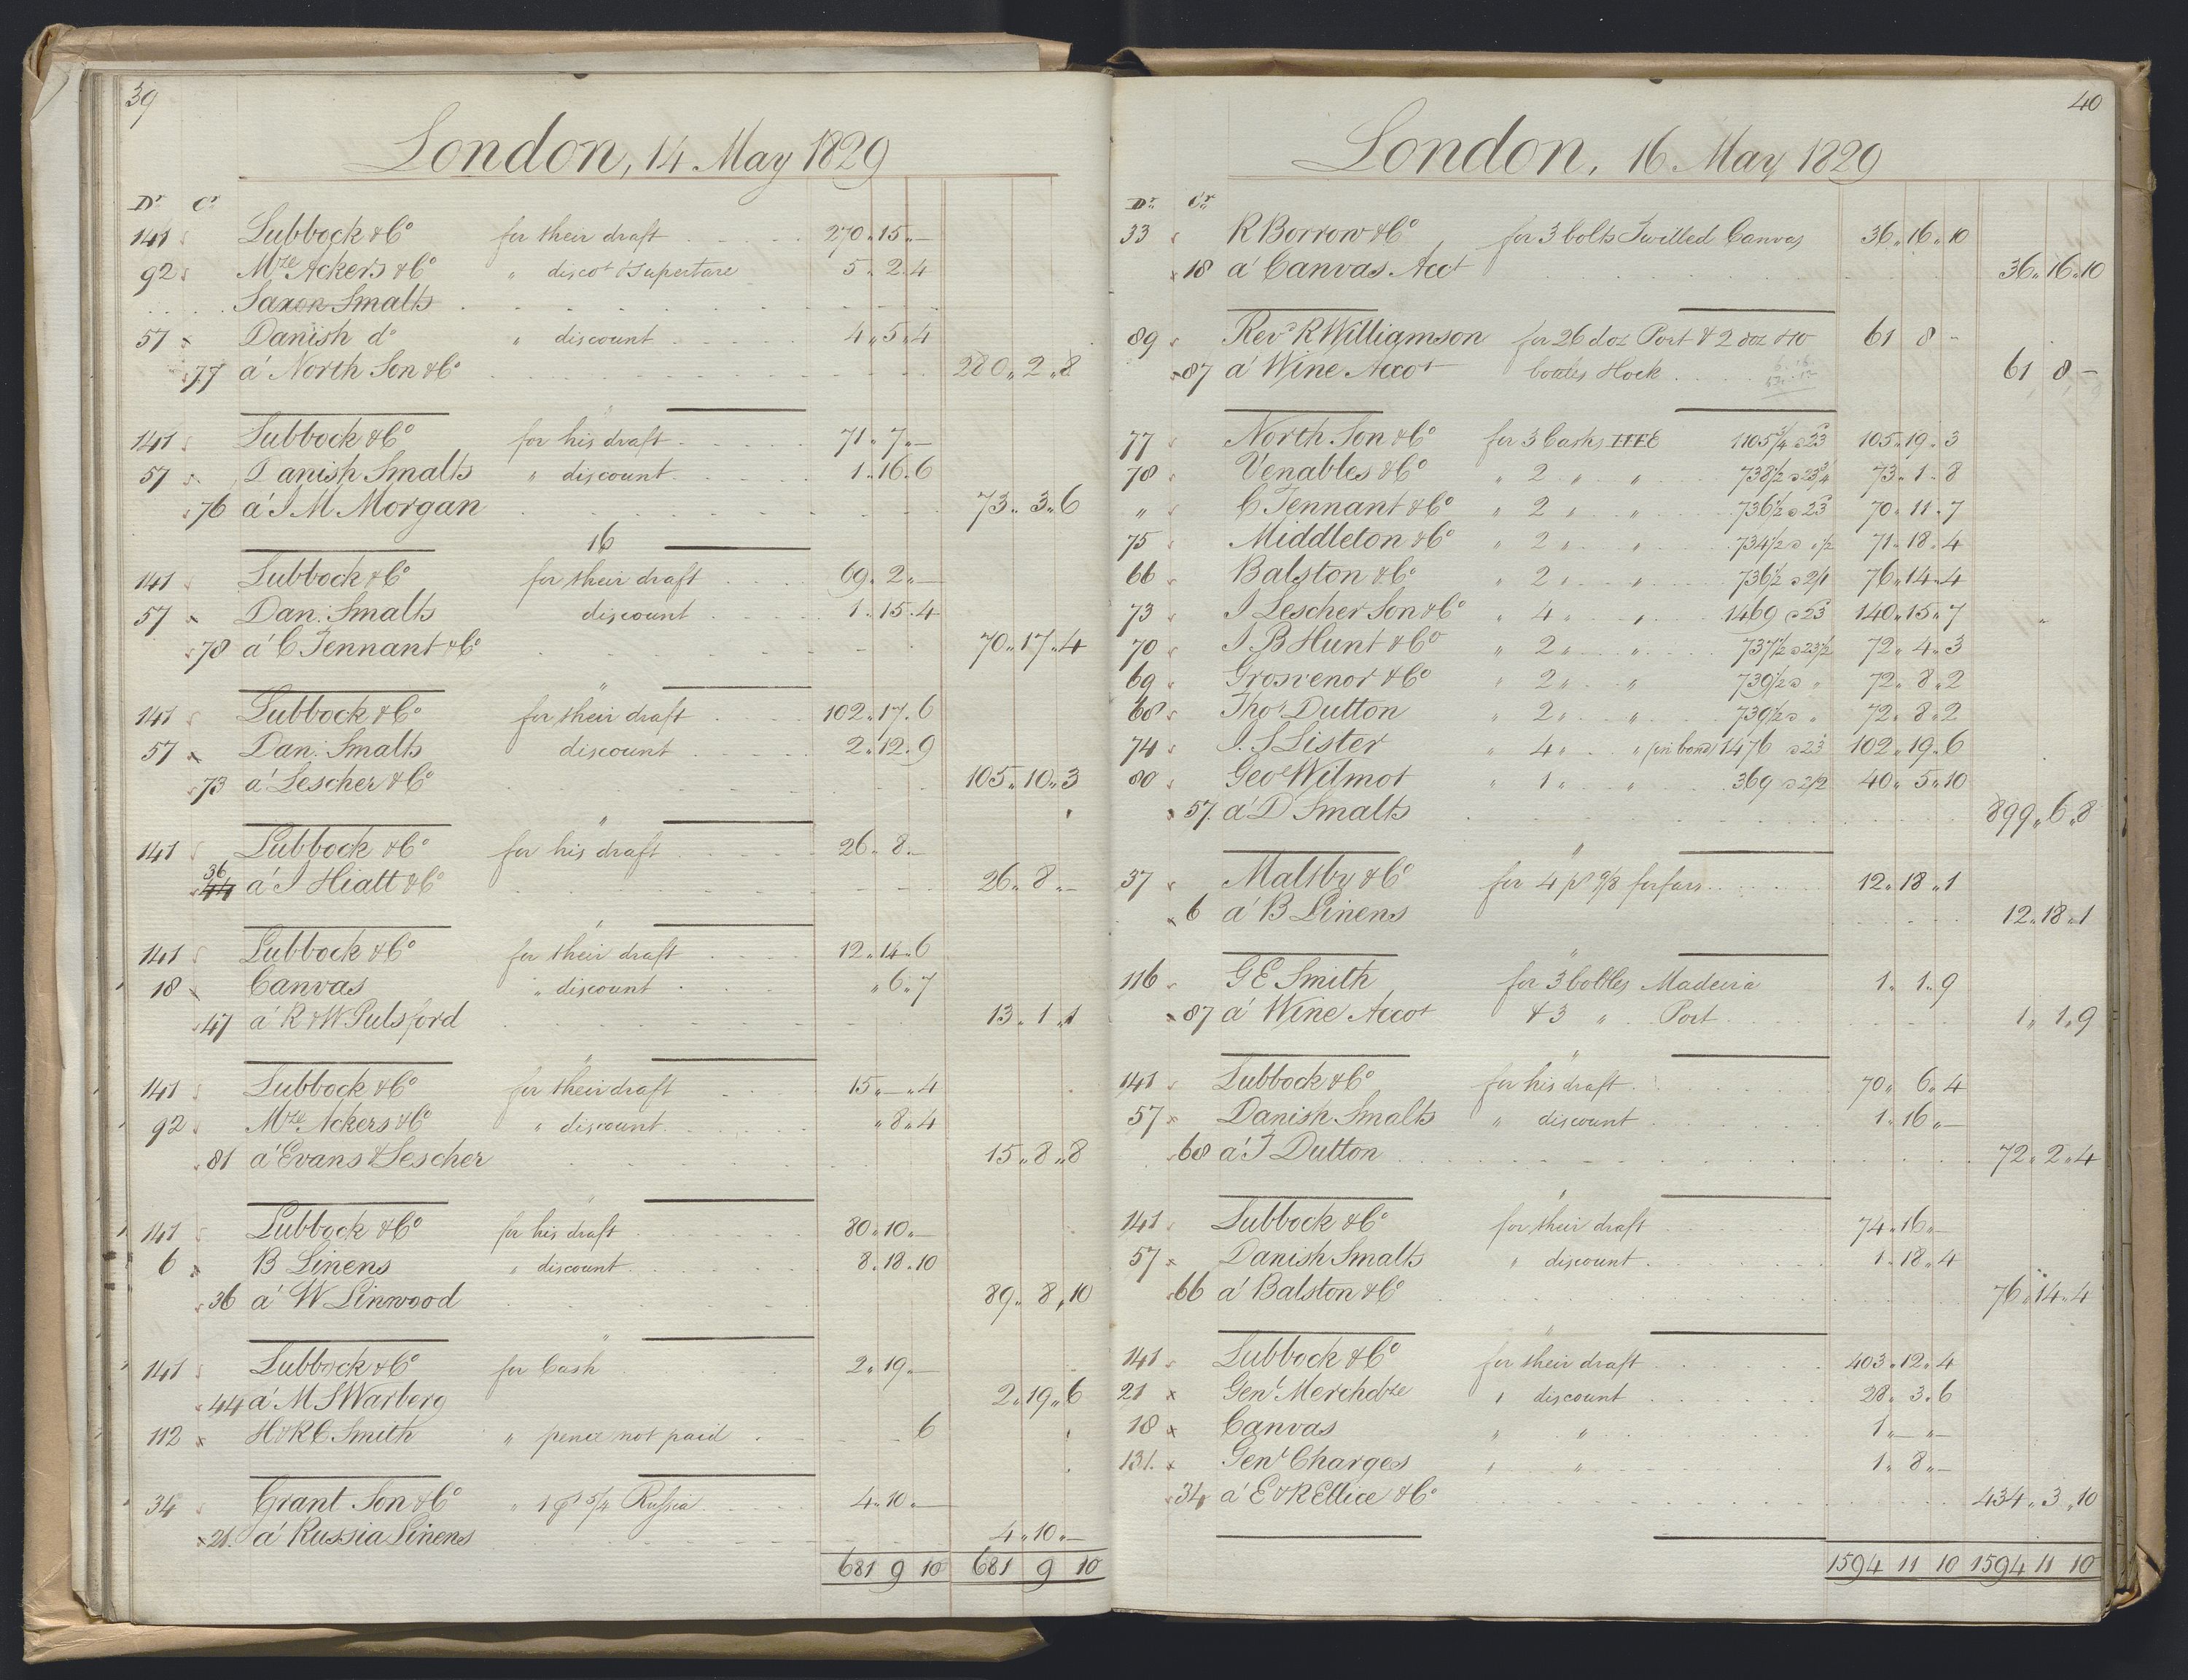 39
London, 14 May 1829
Dr Cr
141 Lubbock & Co for their draft 270 " 15 " —
92 Mze Ackers & Co " discot & Supertare 5 " 2 " 4
Saxon Smalts
57 x Danish do " discount 4 " 5 " 4
77 a' North Son & Co 280 " 2 " 8
"
141 Lubbock & Co for his draft 71 " 7 " —
57 Danish Smalts " discount 1 " 16 " 6
76 a' J M Morgan 73 " 3 " 6
16
141 Lubbock & Co for their draft 69 " 2 " —
57 x Dan: Smalts discount 1 " 15 " 4
78 a' C Tennant & Co 70 " 17 " 4
"
141 Lubbock & Co for their draft 102 " 17 " 6
57 x Dan: Smalts discount 2 " 12 " 9
73 a' Lescher & Co 105 " 10 " 3
"
141 Lubbock & Co for his draft 26 " 8 " —
36
44 a' J Hiatt & Co 26 " 8 " —
"
141 Lubbock & Co for their draft 12 " 14 " 6
18 x Canvas " discount " 6 " 7
47 a' R & W Pulsford 13 " 1 " 1
"
141 Lubbock & Co for their draft 15 " — " 4
92 Mze Ackers & Co " discount " 8 " 4
81 a' Evans & Lescher 15 " 8 " 8
"
141 Lubbock & Co for his draft 80 " 10 " —
6 x B Linens " discount 8 " 18 " 10
36 a' W Linwood 89 " 8 " 10
"
141 Lubbock & Co for Cash 2 " 19 " —
44 a' M S Warberg 2 " 19 " 6
112 x H & R C Smith " pence not paid 6
34 Grant Son & Co " 1 ps 5/4 Russia 4 " 10 " —
x 21 a' Russia Linens 4 " 10 " —
681 9 10 681 9 10
40
London, 16 May 1829
Dr Cr
33 R Borrow & Co for 3 bolts Twilled Canvas 36 " 16 " 10
x 18 a' Canvas Acct 36 " 16 " 10
89 Revd R Williamson for 26 doz Port & 2 doz & 10 61 8 -
x 87 a' Wine Accot bottles Hock 61 8 -
77 North Son & Co for 3 Casks FFFE 1105 3/4 a 23 105 " 19 " 3
78 Venables & Co " 2 " " 738 1/2 a 23 3/4 73 " 1 " 8
" C Tennant & Co " 2 " " 736 1/2 a 23 70 " 11 " 7
75 Middleton & Co " 2 " " 734 1/2 a " 1/2 71 " 18 " 4
66 Balston & Co " 2 " " 736 1/2 a 2/1 76 " 14 " 4
73 J Lescher Son & Co " 4 " " 1469 a 23 140 " 15 " 7
70 J B Hunt & Co " 2 " " 737 1/2 a 23 1/2 72 " 4 " 3
69 Grosvenor & Co " 2 " " 739 1/2 a " 72 " 8 " 2
68 Thos Dutton " 2 " " 739 1/2 a " 72 " 8 " 2
74 J. S Lister " 4 " " (in bond) 1476 a 23 102 " 19 " 6
80 Geo Wilmot " 1 " " 369 a 2/2 40 " 5 " 10
x 57 a' D Smalts 899 " 6 " 8
"
37 Maltby & Co for 4 ps 9/8 forfars 12 " 18 " 1
x 6 a' B Linens 12 " 18 " 1
"
116 G E Smith for 3 bottles Madeira 1 " 1 " 9
x 87 a' Wine Accot & 3 " Port 1 " 1 " 9
"
141 Lubbock & Co for his draft 70 " 6 " 4
57 x Danish Smalts " discount 1 " 16 " —
68 a' T Dutton 72 " 2 " 4
"
141 Lubbock & Co for their draft 74 " 16 " —
57 x Danish Smalts " discount 1 " 18 " 4
66 a' Balston & Co 76 " 14 " 4
"
141 Lubbock & Co for their draft 403 " 12 " 4
21 x Genl Merchdze " discount 28 " 3 " 6
18 x Canvas " " 1 " — " —
131. x Genl Charges " " 1 " 8 " —
34 a' E & R Ellice & Co 434 " 3 " 10
1594 11 10 1594 11 10